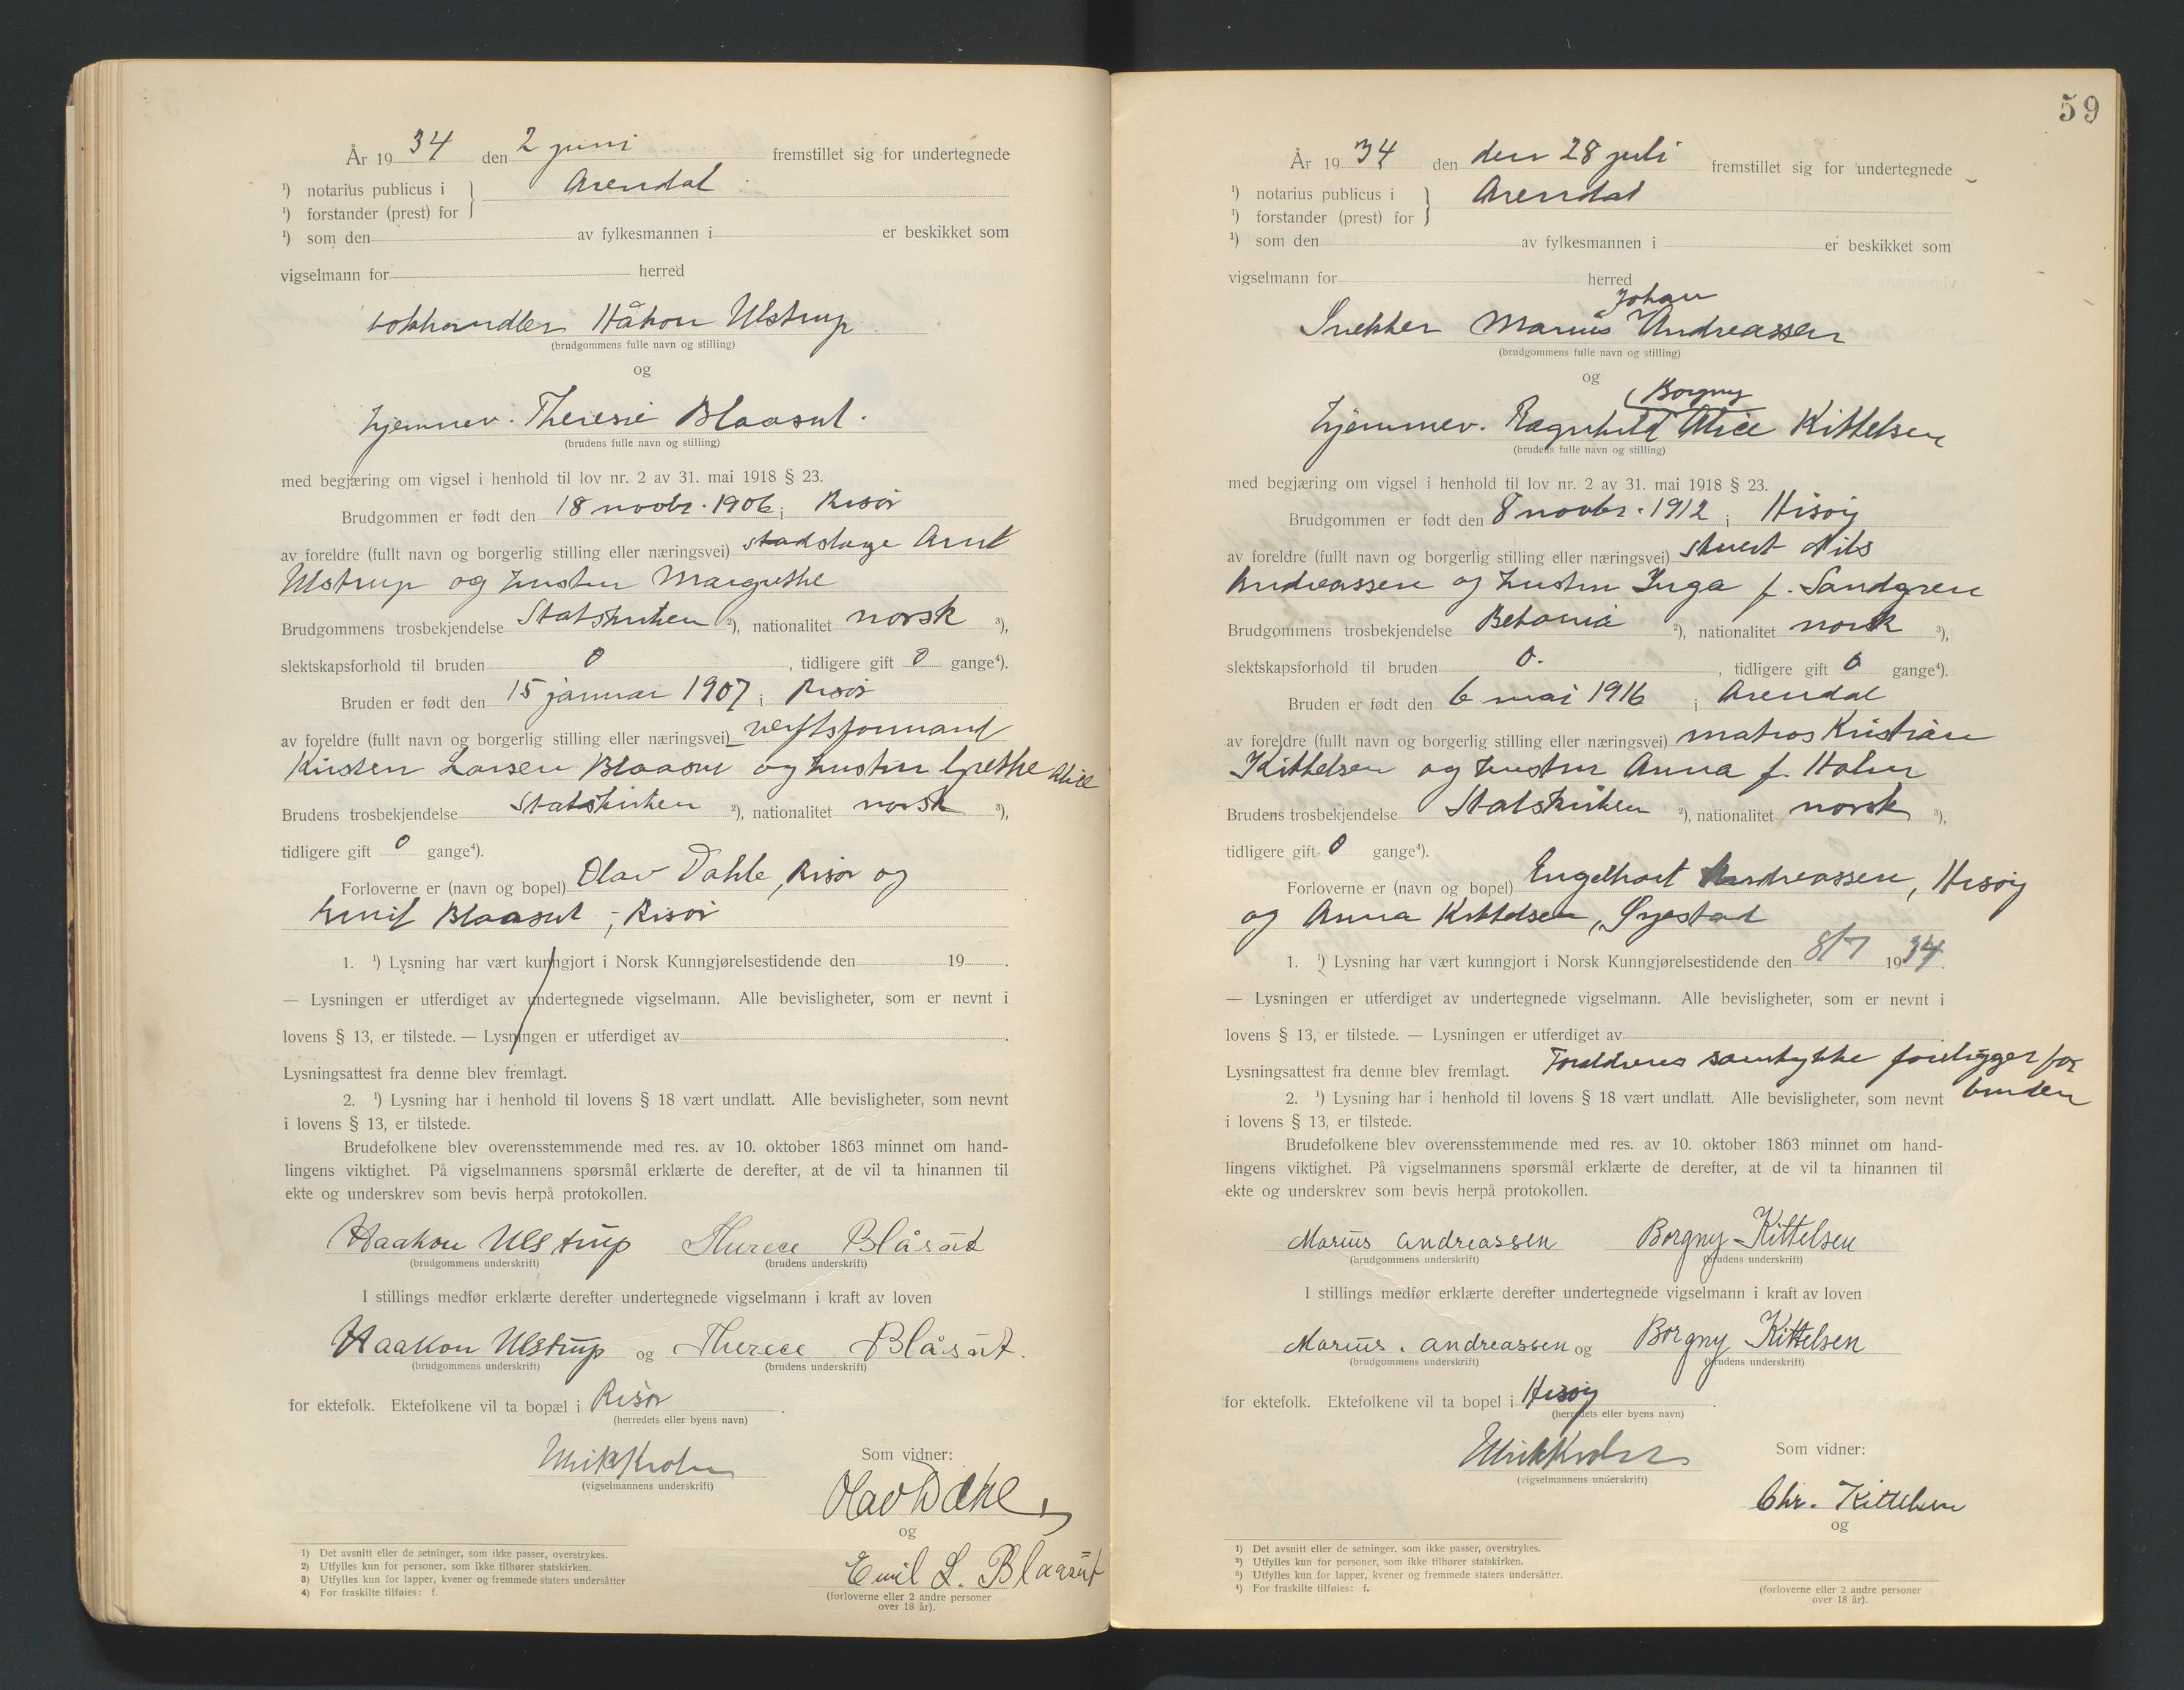 År 19 34 den 2 juni fremstillet sig for undertegnede
¹) notarius publicus i } Arendal
¹) forstander (prest) for
¹) som den av fylkesmannen i er beskikket som
vigselmann for herred
bokhandler Håkon Ulstrup
(brudgommens fulle navn og stilling)
og
hjemmev. Theresie Blaasut.
(brudens fulle navn og stilling)
med begjæring om vigsel i henhold til lov nr. 2 av 31. mai 1918 § 23.
Brudgommen er født den 18 novbr. 1906 i Risør
av foreldre (fullt navn og borgerlig stilling eller næringsvei) Arnt
Ulstrup og hustru Margrethe
Brudgommens trosbekjendelse Statskirken ²), nationalitet norsk ³),
slektskapsforhold til bruden 0, tidligere gift 0 gange⁴).
Bruden er født den 15 januar 1907 i Risør
av foreldre (fullt navn og borgerlig stilling eller næringsvei) verftsformand
Kirsten Larsen Blaasut og hustru Grethe Alice
Brudens trosbekjendelse Statskirken ²), nationalitet norsk ³),
tidligere gift 0 gange⁴).
Forloverne er (navn og bopel) Olav Dahle, Risør og
Emil Blaasut, Risør
1. ¹) Lysning har vært kunngjort i Norsk Kunngjørelsestidende den 19 .
— Lysningen er utferdiget av undertegnede vigselmann. Alle bevisligheter, som er nevnt i
lovens § 13, er tilstede. — Lysningen er utferdiget av .
Lysningsattest fra denne blev fremlagt.
2. ¹) Lysning har i henhold til lovens § 18 vært undlatt. Alle bevisligheter, som nevnt
i lovens § 13, er tilstede.
Brudefolkene blev overensstemmende med res. av 10. oktober 1863 minnet om hand-
lingens viktighet. På vigselmannens spørsmål erklærte de derefter, at de vil ta hinannen til
ekte og underskrev som bevis herpå protokollen.
Haakon Ulstrup Therece Blåsut
(brudgommens underskrift) (brudens underskrift)
I stillings medfør erklærte derefter undertegnede vigselmann i kraft av loven
Haakon Ulstrup og Therece Blåsut.
(brudgommens underskrift) (brudens underskrift)
for ektefolk. Ektefolkene vil ta bopæl i Risør .
(herredets eller byens navn)
Ulrik Krohn
(vigselmannens underskrift)
Som vidner:
Olav Dahle
og
Emil L. Blaasut
(forloverne eller 2 andre personer
over 18 år).
1) Det avsnitt eller de setninger, som ikke passer, overstrykes.
2) Utfylles kun for personer, som ikke tilhører statskirken.
3) Utfylles kun for lapper, kvener og fremmede staters undersåtter
4) For fraskilte tilføies: f.
59
År 19 34 den den 28 juli fremstillet sig for undertegnede
¹) notarius publicus i } Arendal
¹) forstander (prest) for
¹) som den av fylkesmannen i er beskikket som
vigselmann for herred
Johan
Snekker Marius Andreassen
(brudgommens fulle navn og stilling)
og
Borgny
hjemmev. Ragnhild Alice Kittelsen
(brudens fulle navn og stilling)
med begjæring om vigsel i henhold til lov nr. 2 av 31. mai 1918 § 23.
Brudgommen er født den 8 novbr. 1912 i Hisøy
av foreldre (fullt navn og borgerlig stilling eller næringsvei) stuert Nils
Andreassen og hustru Inga f. Sandgren
Brudgommens trosbekjendelse Betania ²), nationalitet norsk ³),
slektskapsforhold til bruden 0. , tidligere gift 0 gange⁴).
Bruden er født den 6 mai 1916 i Arendal
av foreldre (fullt navn og borgerlig stilling eller næringsvei) matros Kristian
Kittelsen og hustru Anna f. Holm
Brudens trosbekjendelse Statskirken ²), nationalitet norsk ³),
tidligere gift 0 gange⁴).
Forloverne er (navn og bopel) Engelhart Andreassen, Hisøy
og Anna Kittelsen, Øyestad
1. ¹) Lysning har vært kunngjort i Norsk Kunngjørelsestidende den 8/7 1934.
— Lysningen er utferdiget av undertegnede vigselmann. Alle bevisligheter, som er nevnt i
lovens § 13, er tilstede. — Lysningen er utferdiget av
Lysningsattest fra denne blev fremlagt. Foreldrenes samtykke foreligger for
bruden
2. ¹) Lysning har i henhold til lovens § 18 vært undlatt. Alle bevisligheter, som nevnt
i lovens § 13, er tilstede.
Brudefolkene blev overensstemmende med res. av 10. oktober 1863 minnet om hand-
lingens viktighet. På vigselmannens spørsmål erklærte de derefter, at de vil ta hinannen til
ekte og underskrev som bevis herpå protokollen.
Marius Andreassen Borgny Kittelsen
(brudgommens underskrift) (brudens underskrift)
I stillings medfør erklærte derefter undertegnede vigselmann i kraft av loven
Marius. Andreassen og Borgny Kittelsen
(brudgommens underskrift) (brudens underskrift)
for ektefolk. Ektefolkene vil ta bopel i Hisøy .
(herredets eller byens navn)
Ulrik Krohn
(vigselmannens underskrift)
Som vidner:
Chr. Kittelsen
og
(forloverne eller 2 andre personer
over 18 år).
1) Det avsnitt eller de setninger, som ikke passer, overstrykes.
2) Utfylles kun for personer, som ikke tilhører statskirken.
3) Utfylles kun for lapper, kvener og fremmede staters undersåtter.
4) For fraskilte tilføies: f.